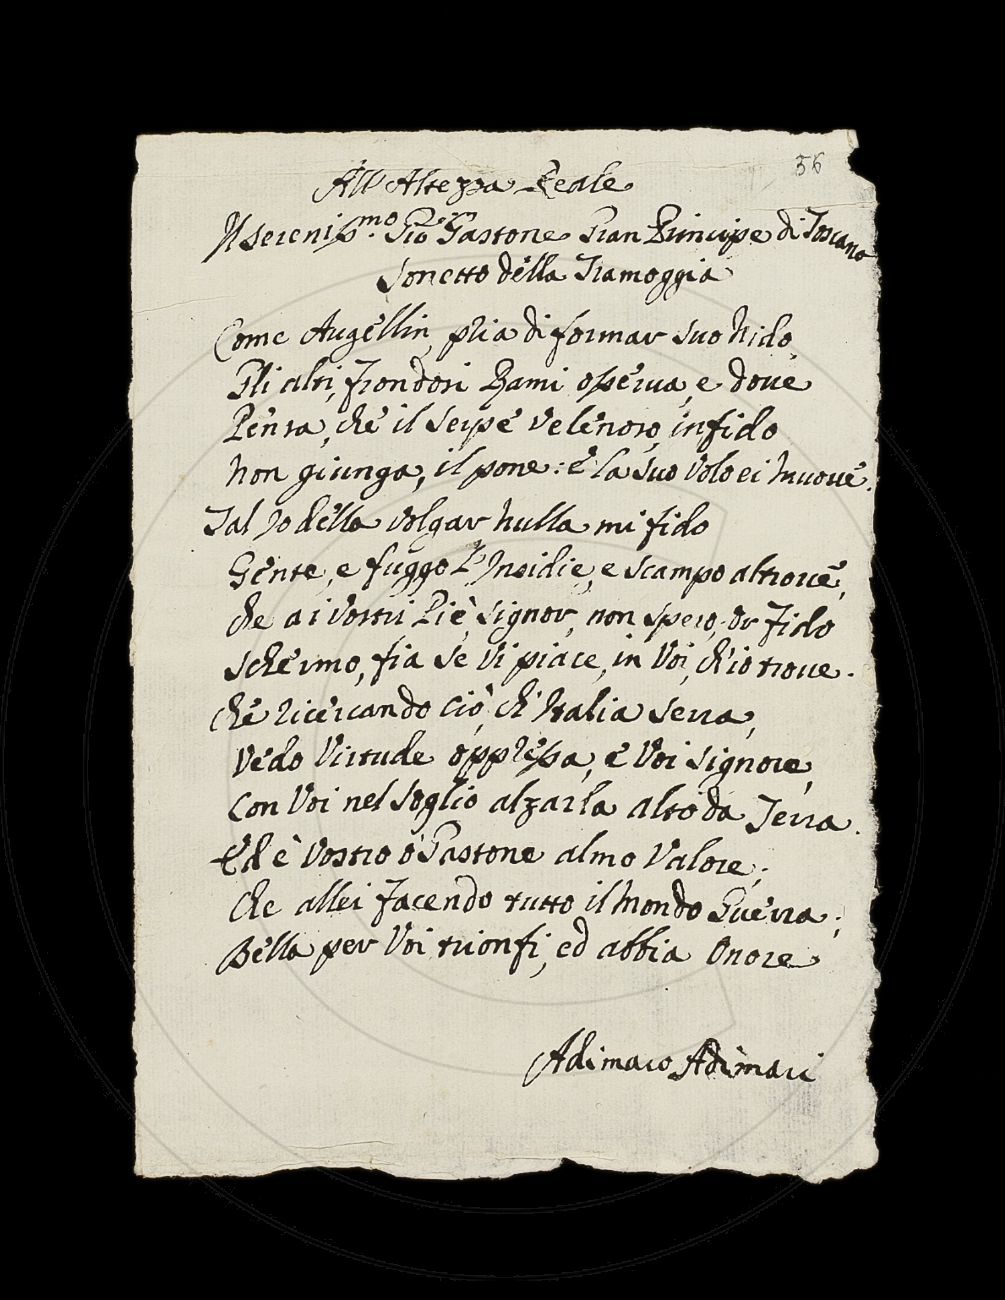 56
All'Altezza Reale
Il sereniss.mo Gio Gastone Gran Principe di Toscana
Sonetto della Tramoggia
Come Augellin, pria di formar suo Nido,
Gli alti, frondosi Rami osserva, e dove
Pensa, che il serpe velenoso, infido
Non giunga, il pone: e la suo Volo ei muove.
Tal Io della volgar nulla mi fido
Gente, e fuggo l'Insidie, e scampo altrove,
Che ai Vostri Piè, Signor, non spero, or fido
Schermo, fia se Vi piace, in Voi, ch'io trove.
Chè ricercando ciò, ch'Italia serra,
Vedo Virtude oppressa, e Voi Signore,
Con Voi nel soglio alzarla alto da Terra.
Ed è Vostro ò Gastone almo Valore;
Che allei facendo tutto il Mondo Guerra;
Bella per Voi trionfi, ed abbia Onore
Adimaro Adimari